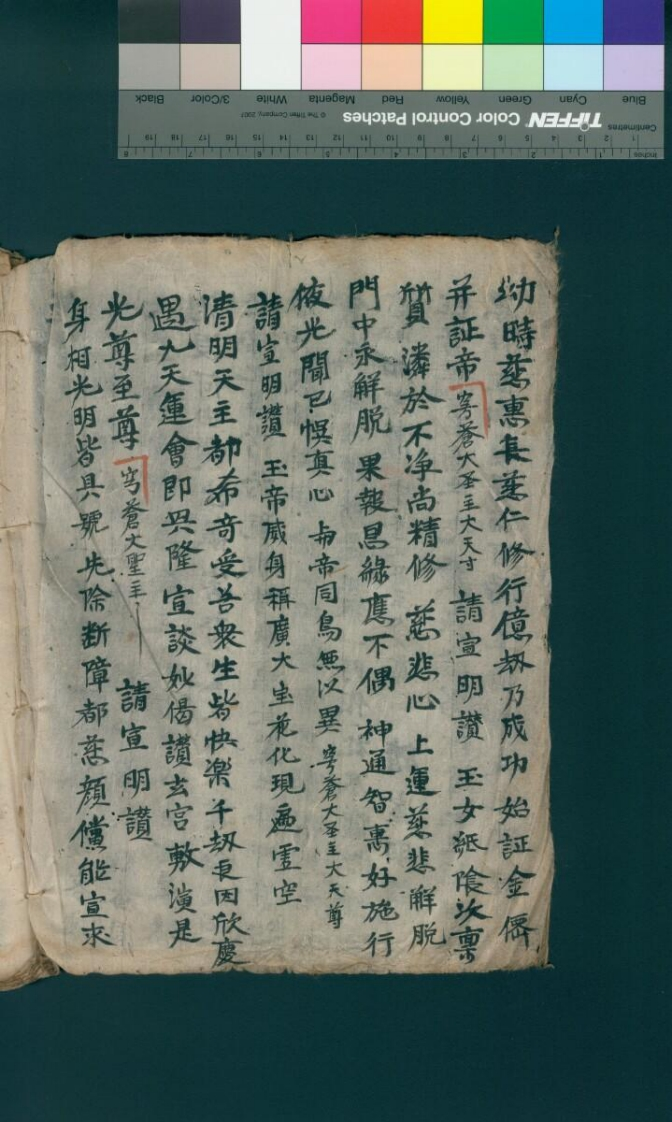 幼時慈惠長慈仁修行億刼乃成功始証金僊
并証帝 穹蒼大圣主大天寸 請宣明讃 玉女絍陰次禀
質 潾於不净尚精修 慈悲心上運慈悲解脱
門中永解脱 果報昌緣應不偶 神通智惠好施行
彼光聞已悞真心 与帝同鳥無以異 穹蒼大圣主大天尊
請宣明讃 玉帝威身稱廣大宝花化現遍霊空
清明天主都希奇受苦衆生皆快樂千刼良因欣慶
遇九天運會即兴隆宣談妙偈讃玄宫敷演是
光尊至尊 穹蒼大聖主 請宣明讃
身相光明皆具號先除断障都慈顔儻能宣求
Centimetres
Inches
TIFFEN Color Control Patches
© The Tiffen Company, 2007
Blue Cyan Green Yellow Red Magenta White 3/Color Black